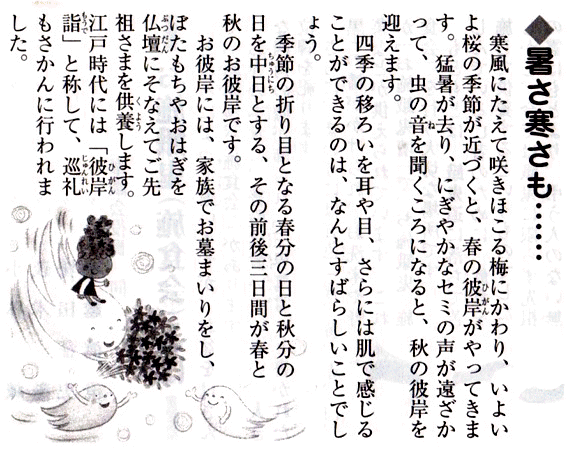 ◆暑さ寒さも……
寒風にたえて咲きほこる梅にかわり、いよい
よ桜の季節が近づくと、春の彼岸がやってきま
す。猛暑が去り、にぎやかなセミの声が遠ざか
って、虫の音を聞くころになると、秋の彼岸を
迎えます。
四季の移ろいを耳や目、さらには肌で感じる
ことができるのは、なんとすばらしいことでし
ょう。
季節の折り目となる春分の日と秋分の
日を中日とする、その前後三日間が春と
秋のお彼岸です。
お彼岸には、家族でお墓まいりをし、
ぼたもちやおはぎを
仏壇にそなえてご先
祖さまを供養します。
江戸時代には「彼岸
詣」と称して、巡礼
もさかんに行われま
した。